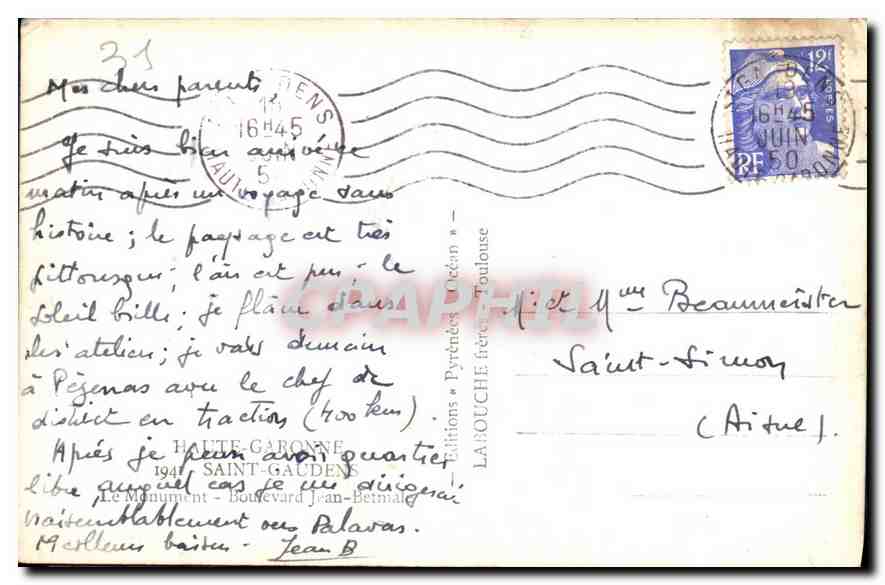 31
Mes chers parents
Je suis bien arrivé ce
matin après un voyage sans
histoire ; le paysage est très
pittoresque ; l'air est pur ; le
soleil brille ; je flâne dans
les atelier ; je vais demain
à Pézenas avec le chef de
district en traction (400 km).
Après je pense avoir quartier
libre auquel cas je me dirigerai
vraisemblablement vers Palavas.
Meilleurs baisers - Jean B
HAUTE-GARONNE
1941 SAINT-GAUDENS
Le Monument - Boulevard Jean-Betmale
Editions « Pyrénées - Océan » -
LABOUCHE frères Toulouse
CPAPHIL
DENS
16H45
JUIN
50
12F
POSTES
RF
13
16H45
JUIN
50
GARONNE
M. et Mme Beaumeister
Saint-Simon
(Aisne).